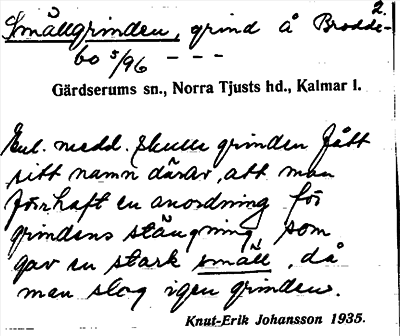 2.
Smällgrinden, grind å Brodde-
bo 5/96 - - -
Gärdserums sn., Norra Tjusts hd., Kalmar l.
Enl. medd. skulle grinden fått
sitt namn därav, att man
förrhaft en anordning för
grindens stängning, som
gav en stark smäll, då
man slog igen grinden.
Knut-Erik Johansson 1935.